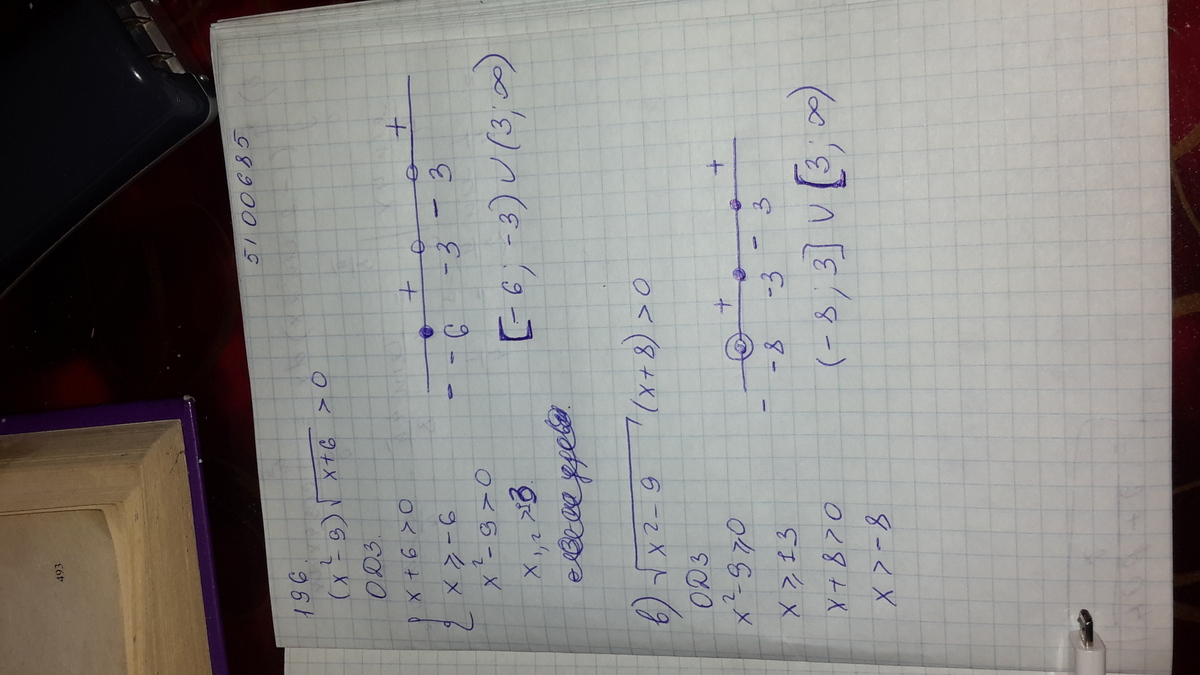 5100685
196.
(x²-9)√x+6 > 0
ОДЗ.
{ x+6>0
x ⩾ -6
x²-9>0
x₁,₂ >
- + - +
-6 -3 3
[-6; -3) ∪ (3; ∞)
в) √x²-9 (x+8) > 0
ОДЗ
x²-9⩾0
x ⩾ ±3
x+8>0
x>-8
- + - +
-8 -3 3
(-8; 3] ∪ [3; ∞)
493